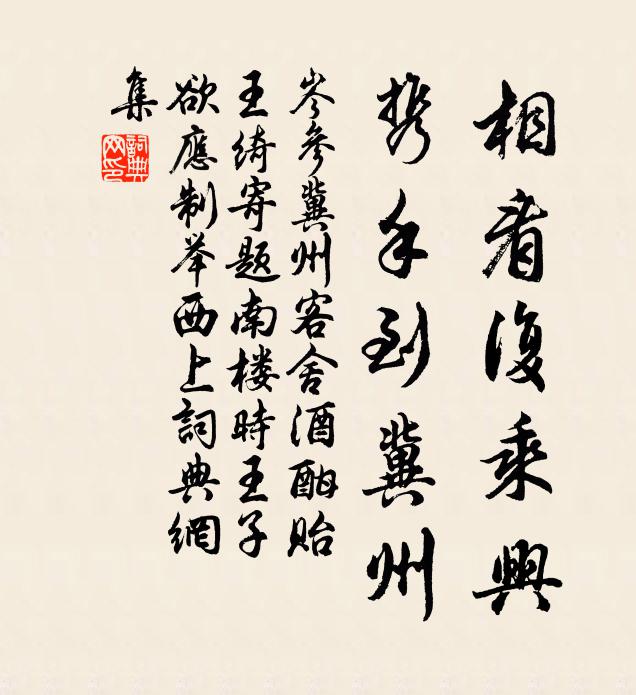 相看復乘興
携手到冀州
岑參冀州客舍酒酣貽
王绮寄题南楼時王子
欲應制举西上詞典網
集
詞典
网印